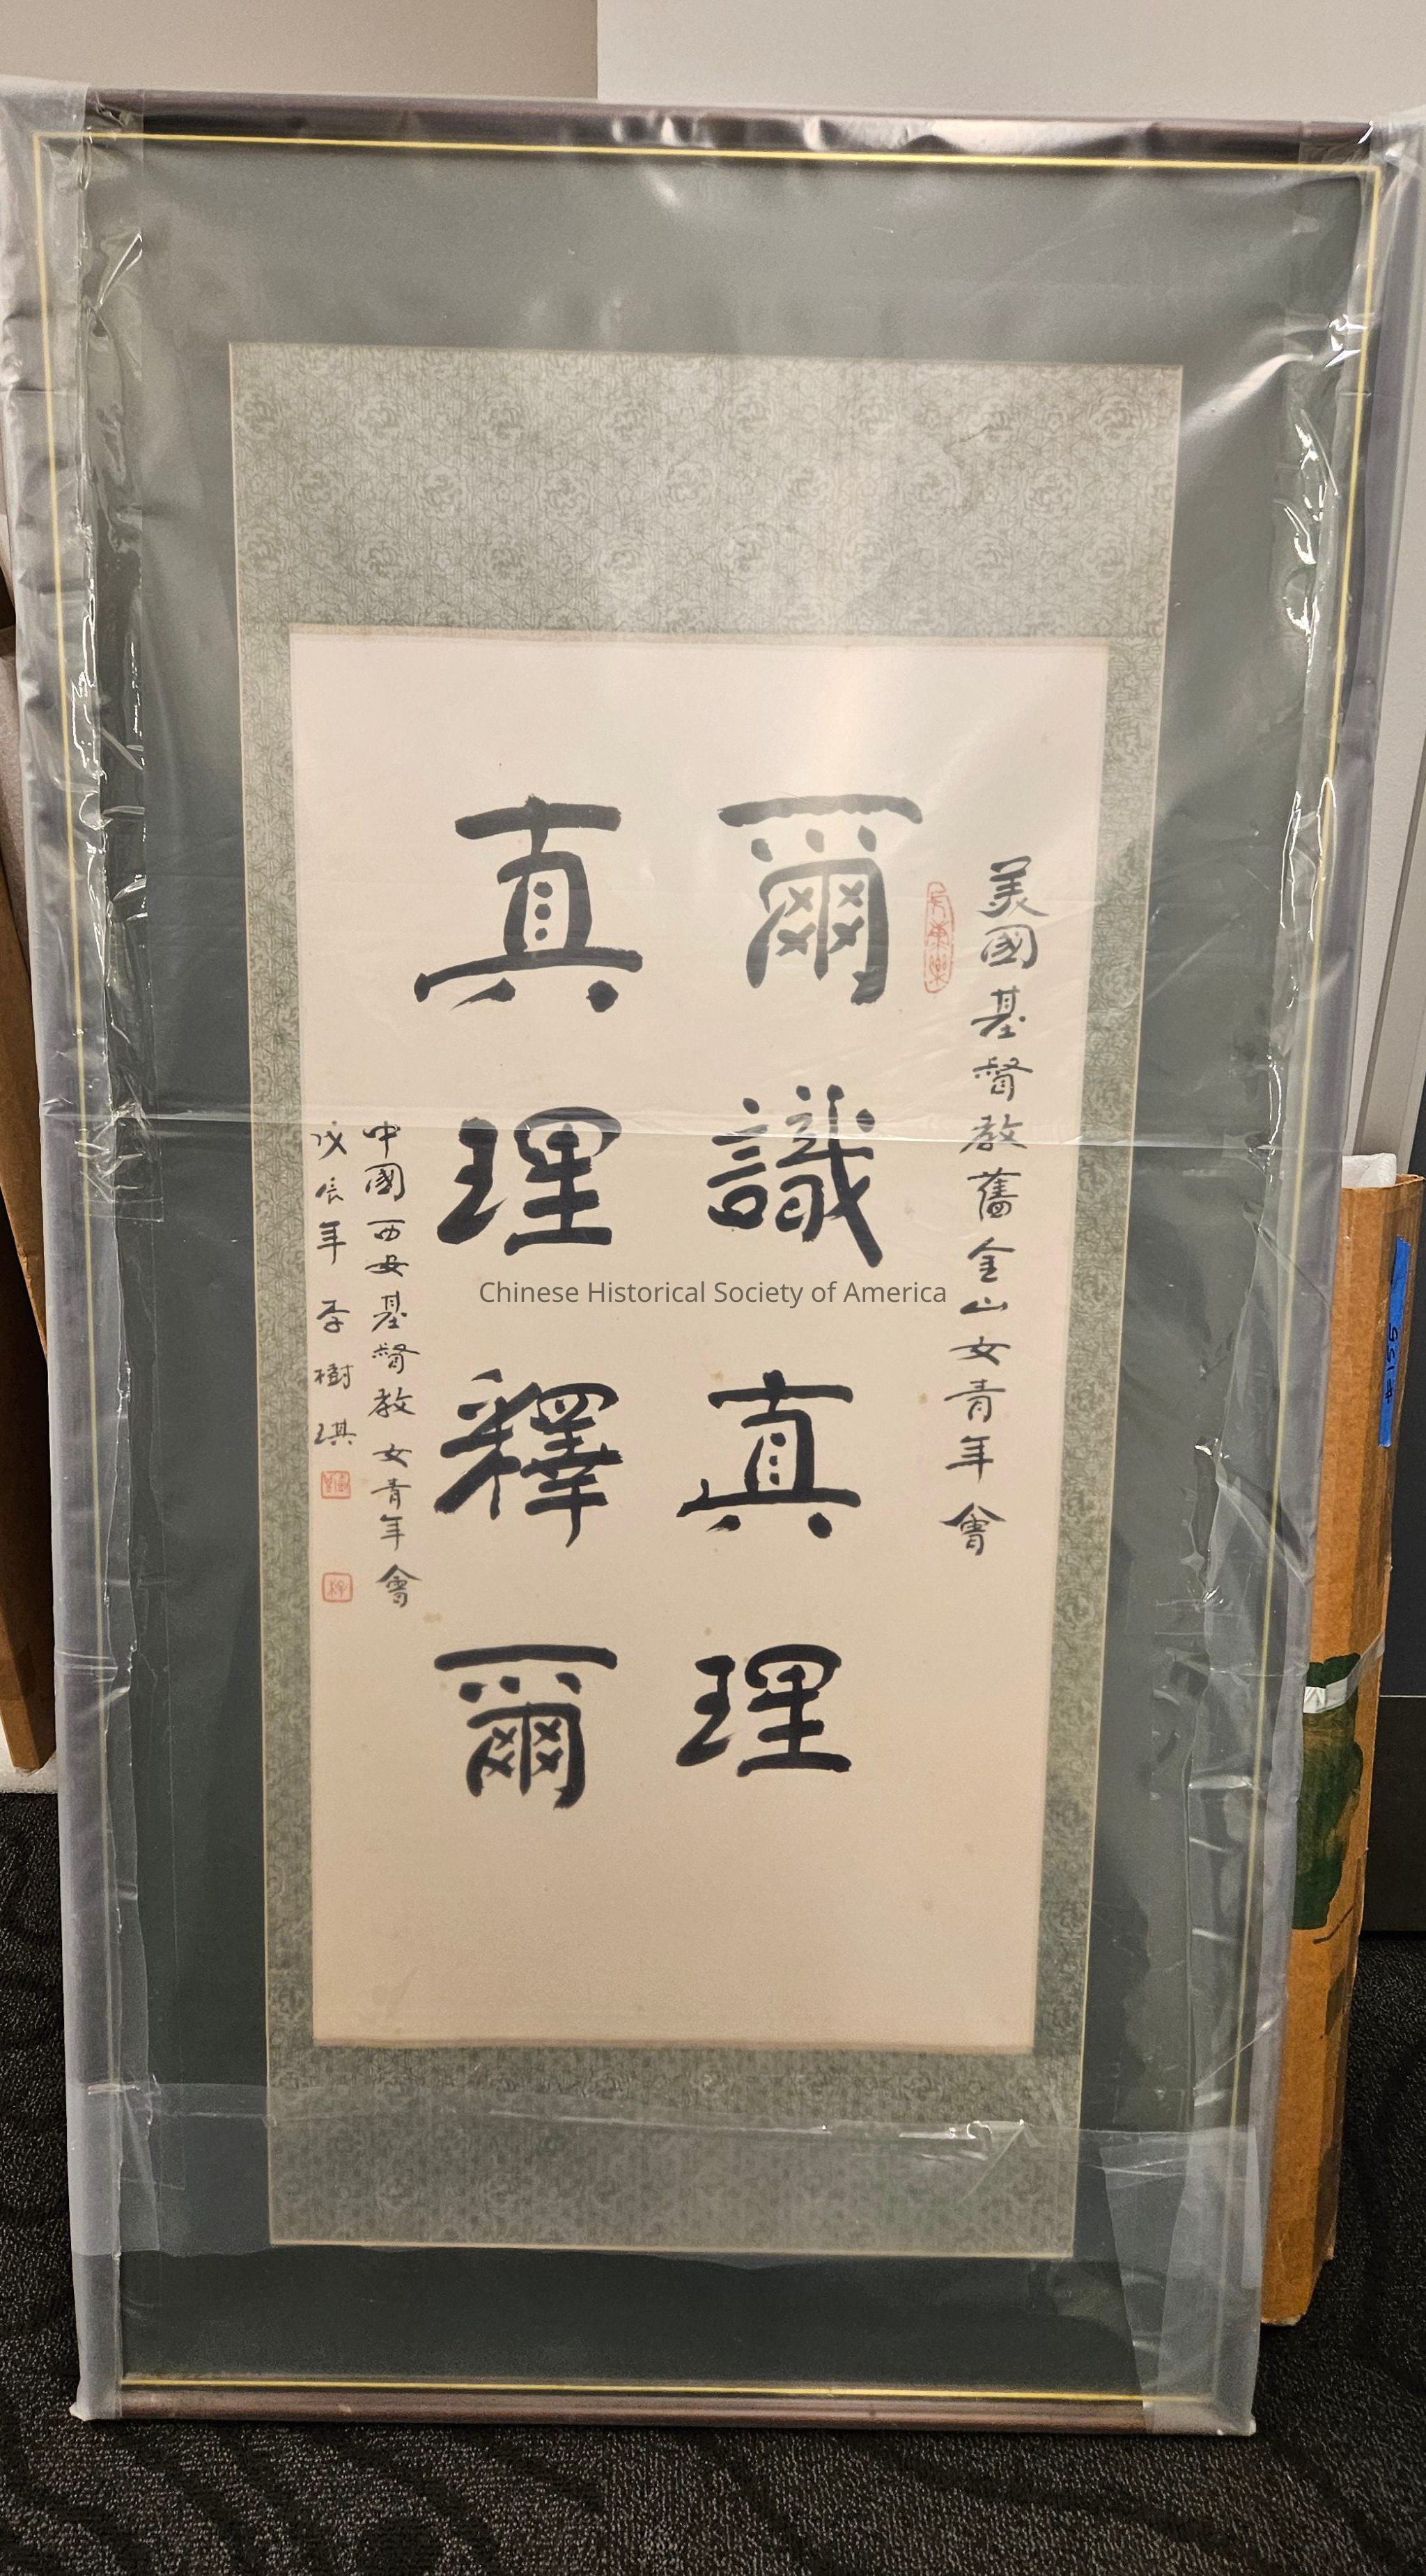 美國基督教舊金山女青年會
爾識真理
真理釋爾
中國西安基督教女青年會
戊辰年 李樹琪
Chinese Historical Society of America